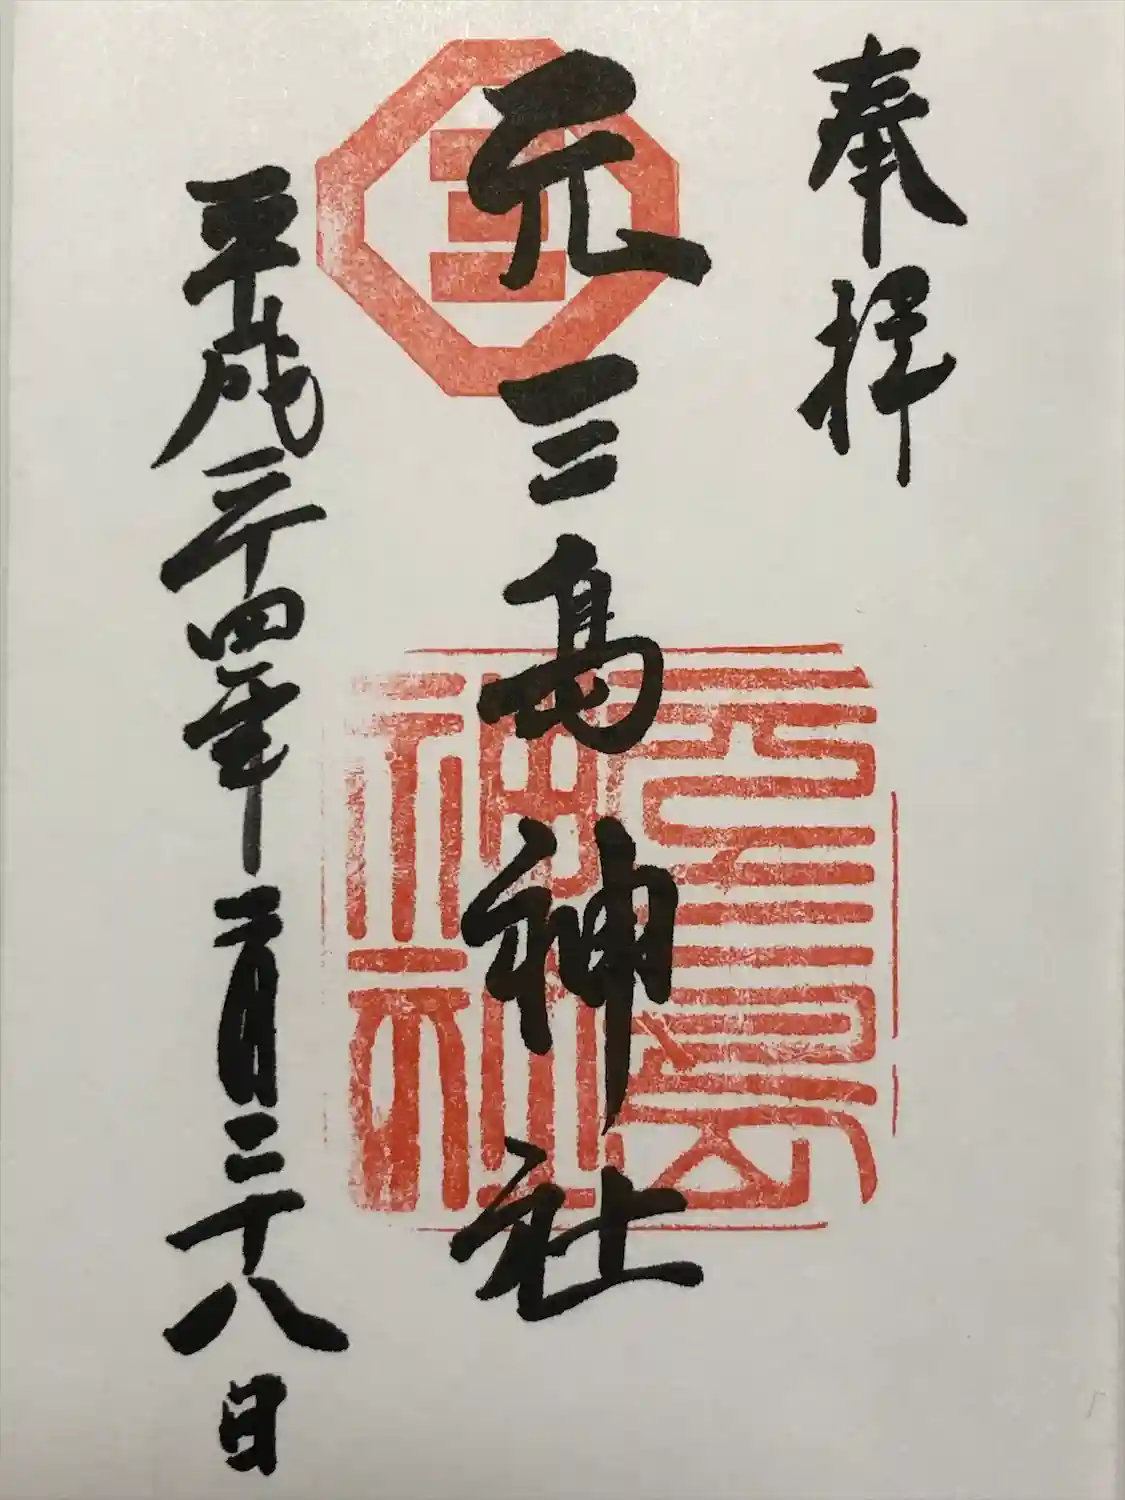 奉拝
元三島神社
平成二十四年二月二十八日
三
元三島
神社